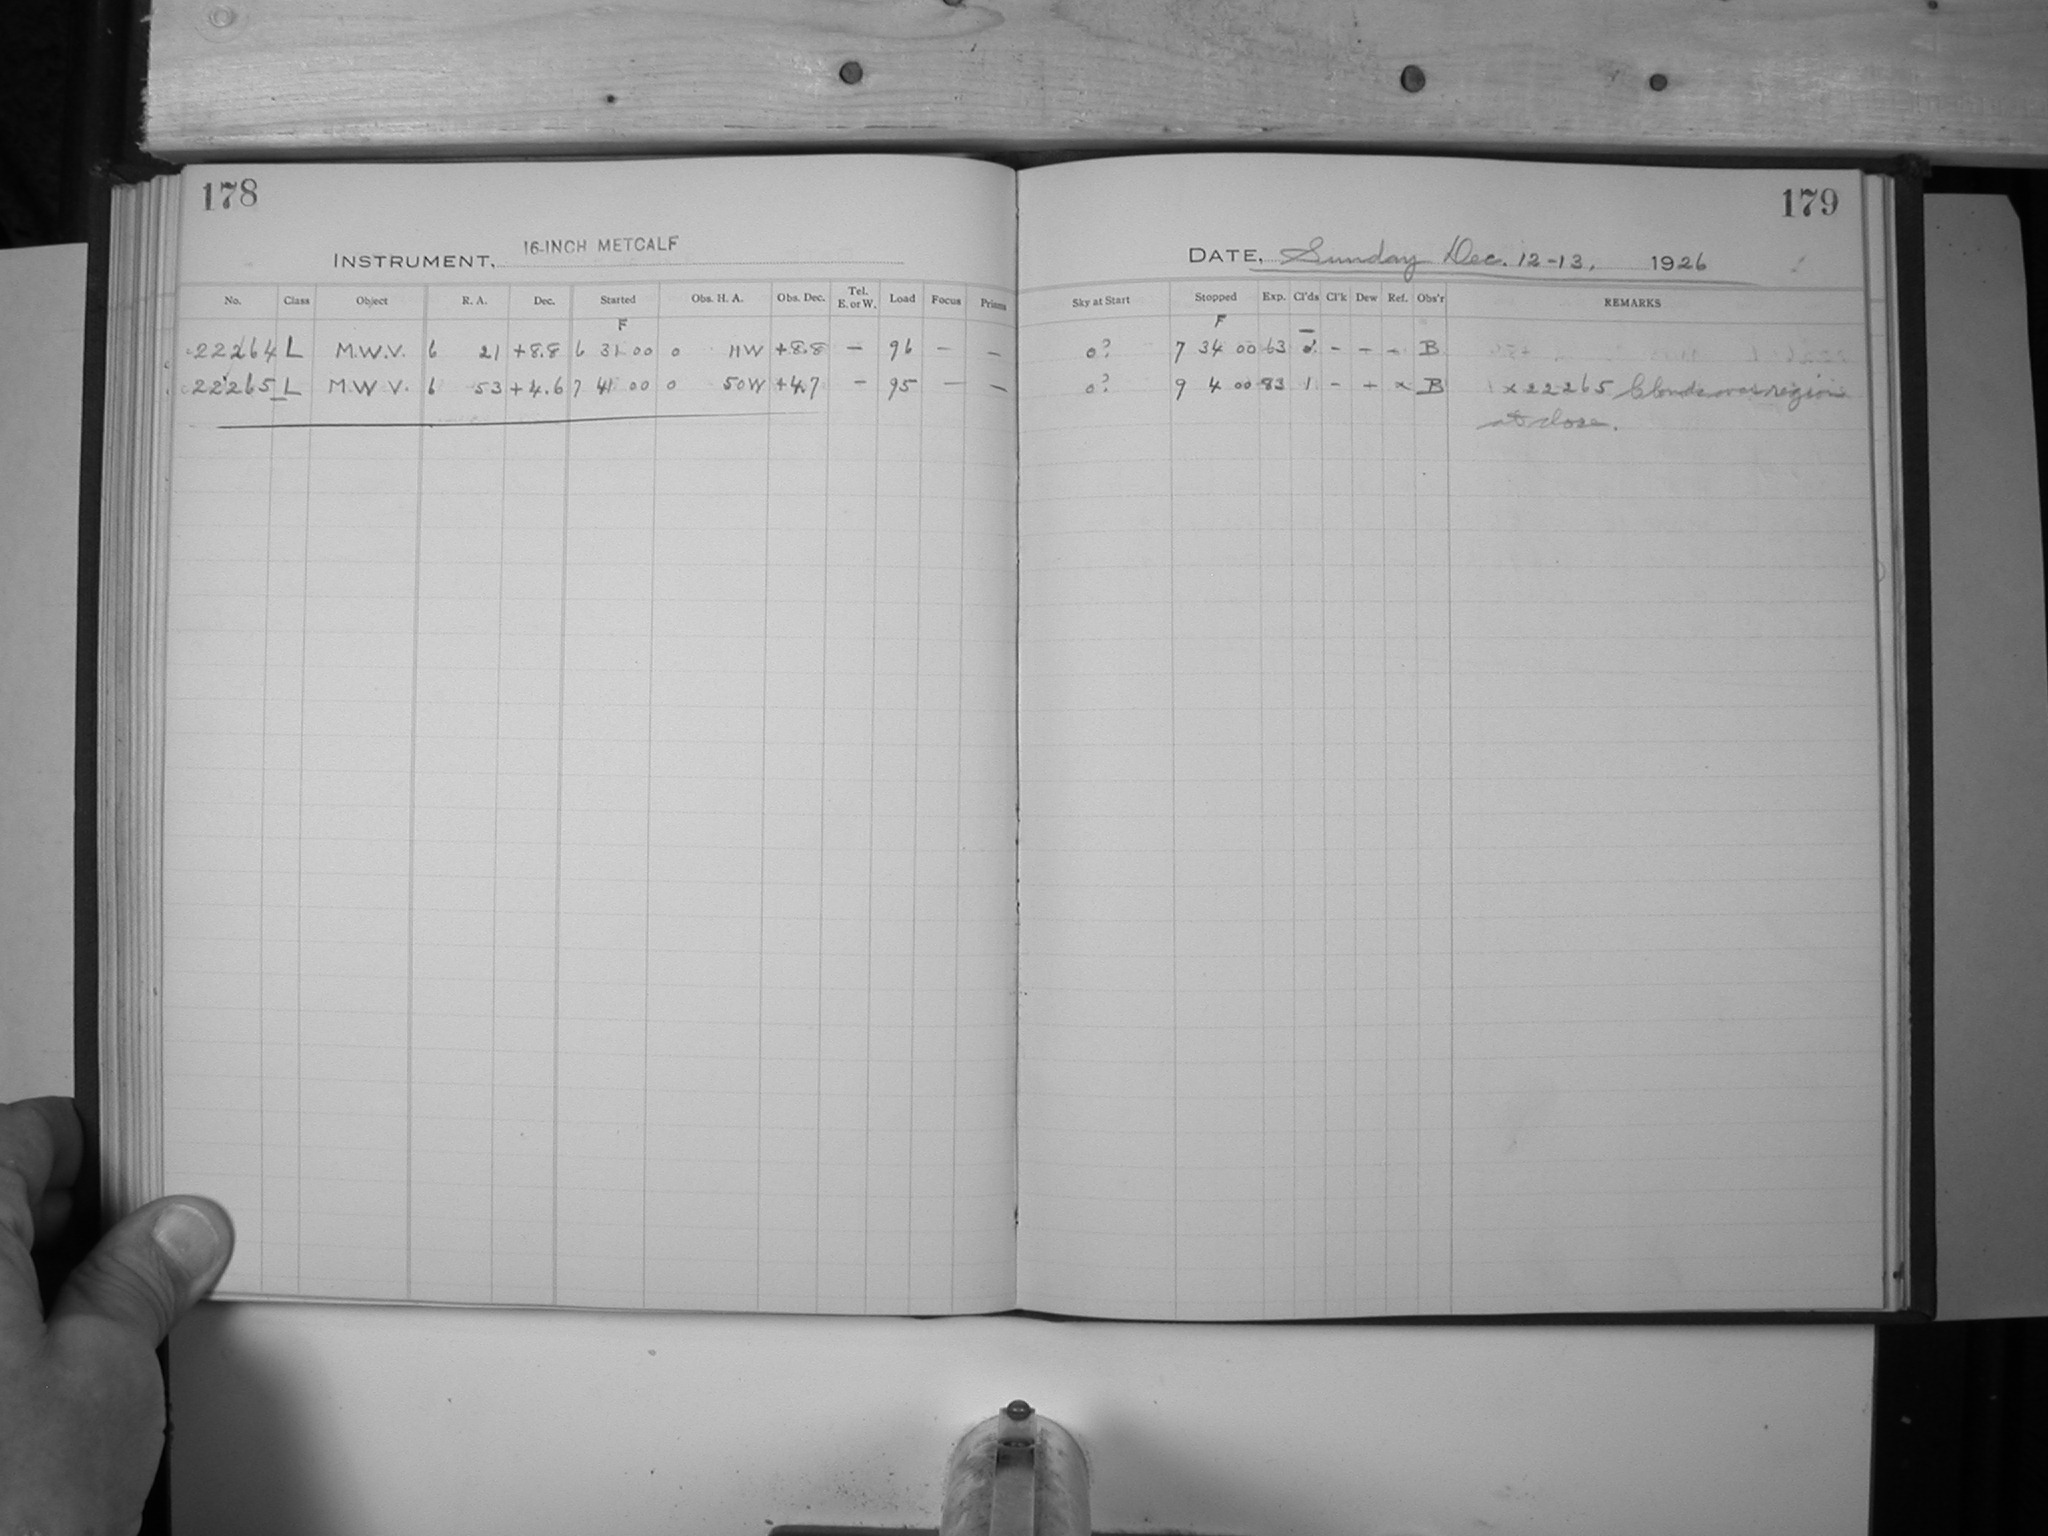 178
179
INSTRUMENT, 16-INCH METCALF
DATE, Sunday Dec. 12-13, 1926
No. Class Object R. A. Dec. Started Obs. H. A. Obs. Dec. Tel. E. or W. Load Focus Prisms Sky at Start Stopped Exp. Cl'ds Cl'k Dew Ref. Obs'r REMARKS
F F
22264 L M.W.V. 6 21 +8.8 6 31 00 0 11W +8.8 — 96 — — 0? 7 34 00 63 - - - B
22265 L M.W.V. 6 53 +4.6 7 41 00 0 50W +4.7 — 95 — — 0? 9 4 00 83 1 - + x B x 22265 Clouds over region
at close.